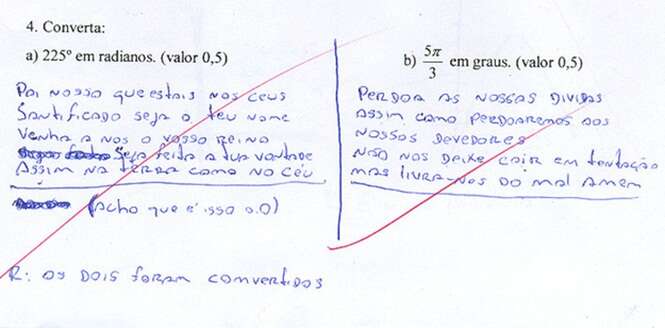 4. Converta:
a) 225º em radianos. (valor 0,5)
Pai nosso que estais nos ceus
Santificado seja o teu nome
Venha a nos o vosso reino
Seja feita a tua vontade
Assim na terra como no céu
(Acho que é isso o.O)
b) 5π/3 em graus. (valor 0,5)
Perdoa as nossas dividas
Assim como perdoaremos aos
nossos devedores
Não nos deixe cair em tentação
mas livra-nos do mal amem
R: os dois foram comvertidos